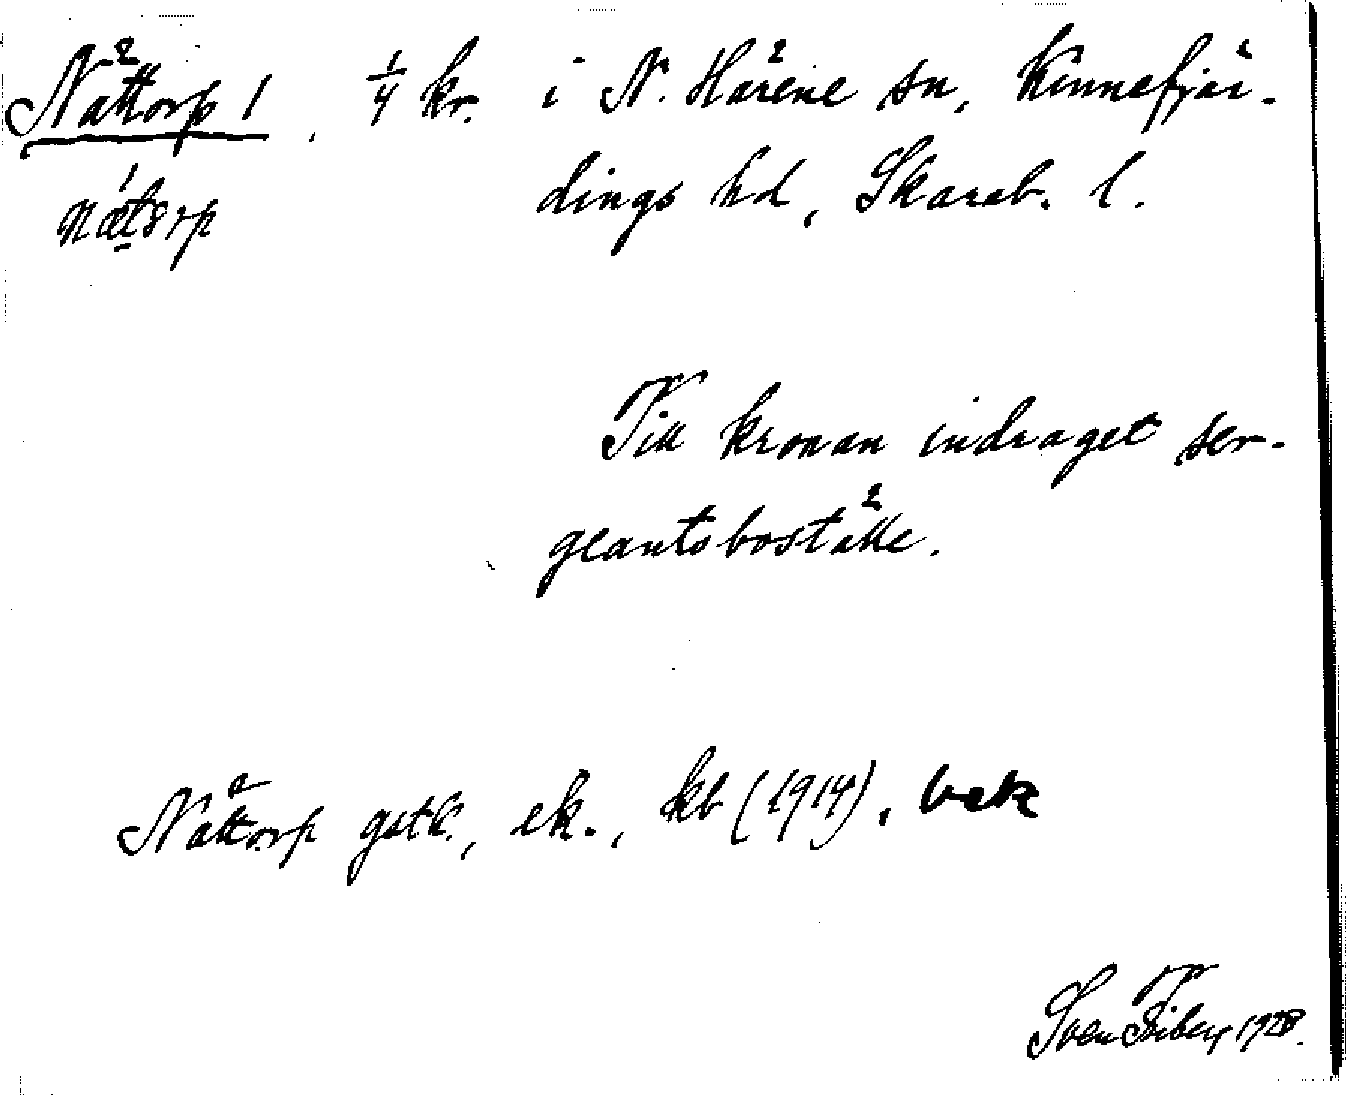 Nättorp 1, 1/4 kr. i N. Härene sn, Kinnefjär-
dings hd, Skarab. l.
Till kronan indraget ser-
geantsboställe.
Nåttorp gstk., ek., kb (1914), bek
Sven Fiberg 1928.